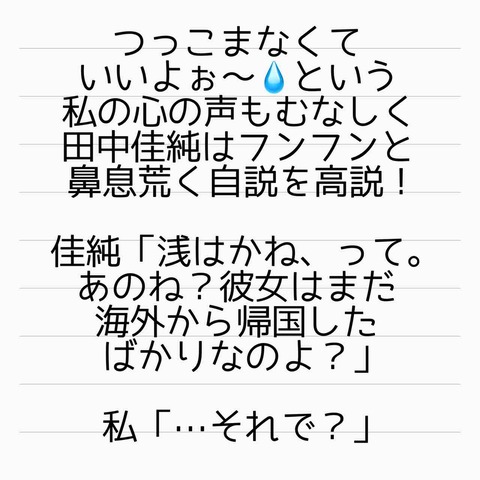 つっこまなくて
いいよぉ〜💧という
私の心の声もむなしく
田中佳純はフンフンと
鼻息荒く自説を高説！
佳純「浅はかね、って。
あのね？彼女はまだ
海外から帰国した
ばかりなのよ？」
私「…それで？」